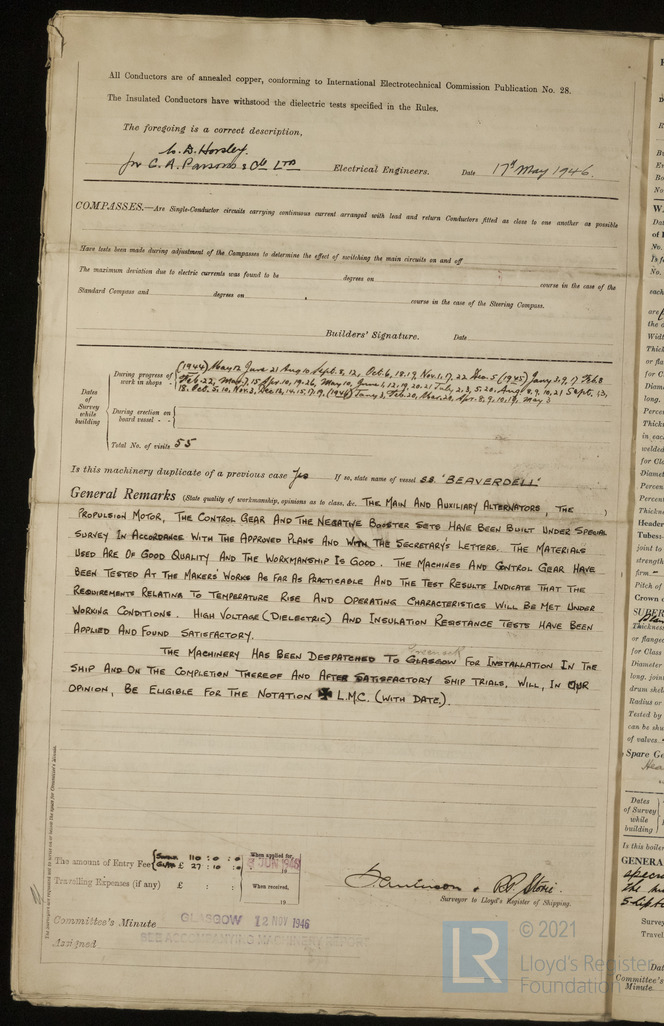 All Conductors are of annealed copper, conforming to International Electrotechnical Commission Publication No. 28.
The Insulated Conductors have withstood the dielectric tests specified in the Rules.
The foregoing is a correct description,
for C. A. Parsons & Co Ltd Electrical Engineers. Date 17th May 1946.
COMPASSES.—Are Single-Conductor circuits carrying continuous current arranged with lead and return Conductors fitted as close to one another as possible
Have tests been made during adjustment of the Compasses to determine the effect of switching the main circuits on and off
The maximum deviation due to electric currents was found to be degrees on course in the case of the
Standard Compass and degrees on course in the case of the Steering Compass.
Builders' Signature. Date
Dates of Survey while building
During progress of work in shops - (1944) May, 12 June 21 Aug 10 Sept. 8, 12, Oct. 6, 18, 19, Nov. 1, 17, 22 Dec. 5 (1945) Jany 3, 9, 17 Feb 8
Feb. 22, Mar. 7, 15 Apr. 10, 19-26, May 10, June 1, 12, 19, 20, 21 July 2, 3, 5, 20, Aug 8, 9, 10, 21 Sept. 13,
18, Oct. 5, 10, Nov. 3, Dec. 12, 14, 15, 17, 19, (1946) Jany 3, Feb. 20, Mar. 20, Apr. 8, 9, 10, 17, May 3
During erection on board vessel - -
Total No. of visits 55
Is this machinery duplicate of a previous case Yes If so, state name of vessel S.S. "BEAVERDELL"
General Remarks (State quality of workmanship, opinions as to class, &c. THE MAIN AND AUXILIARY ALTERNATORS, THE )
PROPULSION MOTOR, THE CONTROL GEAR AND THE NEGATIVE BOOSTER SETS HAVE BEEN BUILT UNDER SPECIAL
SURVEY IN ACCORDANCE WITH THE APPROVED PLANS AND WITH THE SECRETARY'S LETTERS. THE MATERIALS
USED ARE OF GOOD QUALITY AND THE WORKMANSHIP IS GOOD. THE MACHINES AND CONTROL GEAR HAVE
BEEN TESTED AT THE MAKERS' WORKS AS FAR AS PRACTICABLE AND THE TEST RESULTS INDICATE THAT THE
REQUIREMENTS RELATING TO TEMPERATURE RISE AND OPERATING CHARACTERISTICS WILL BE MET UNDER
WORKING CONDITIONS. HIGH VOLTAGE (DIELECTRIC) AND INSULATION RESISTANCE TESTS HAVE BEEN
APPLIED AND FOUND SATISFACTORY.
Greenock
THE MACHINERY HAS BEEN DESPATCHED TO GLASGOW FOR INSTALLATION IN THE
SHIP AND ON THE COMPLETION THEREOF AND AFTER SATISFACTORY SHIP TRIALS, WILL, IN OUR
OPINION, BE ELIGIBLE FOR THE NOTATION ✠ L.M.C. (WITH DATE).
The amount of Entry Fee £ 110 : 0 : 0
£ 27 : 10 : 0
When applied for,
JUN 1946
19
Travelling Expenses (if any) £ : :
When received,
19
Surveyor to Lloyd's Register of Shipping.
Committee's Minute GLASGOW 12 NOV 1946
Assigned SEE ACCOMPANYING MACHINERY REPORT
LR © 2021
Lloyd's Register
Foundation
Spare Ge
Dates
of Survey
while
building
Is this boiler
GENERA
Survey
Travel
Committee's
Minute